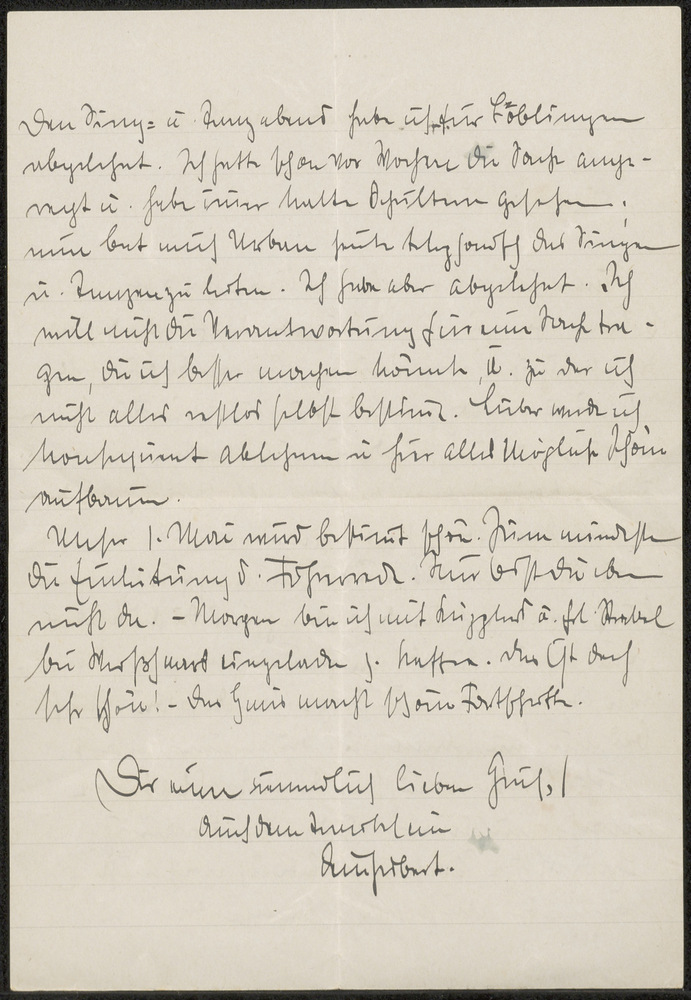 Den Sing= u. Tanzabend habe ich für Böblingen
abgelehnt. Ich hatte schon vor Wochen die Sache ange-
regt u. habe immer kalte Schultern gesehen;
nun bat mich Urban heute telephonisch das Singen
u. Tanzen zu leiten. Ich habe aber abgelehnt. Ich
will nicht die Verantwortung für eine Sache tra-
gen, die ich besser machen könnte, u. zu der ich
nicht alles restlos selbst bestimme. Lieber werde ich
konsequent ablehnen u für alles Mögliche Schöne
aufbauen.
Unser 1. Mai wird bestimmt schön. Zum mindesten
die Einleitung d. Führerrede. Nur bist du eben
nicht da. - Morgen bin ich mit u. Frl. Strobel
bei eingeladen z. Kaffee. Das ist doch
sehr schön! - Das Haus macht schöne Fortschritte.
Dir einen lieben Gruß,
auch dem